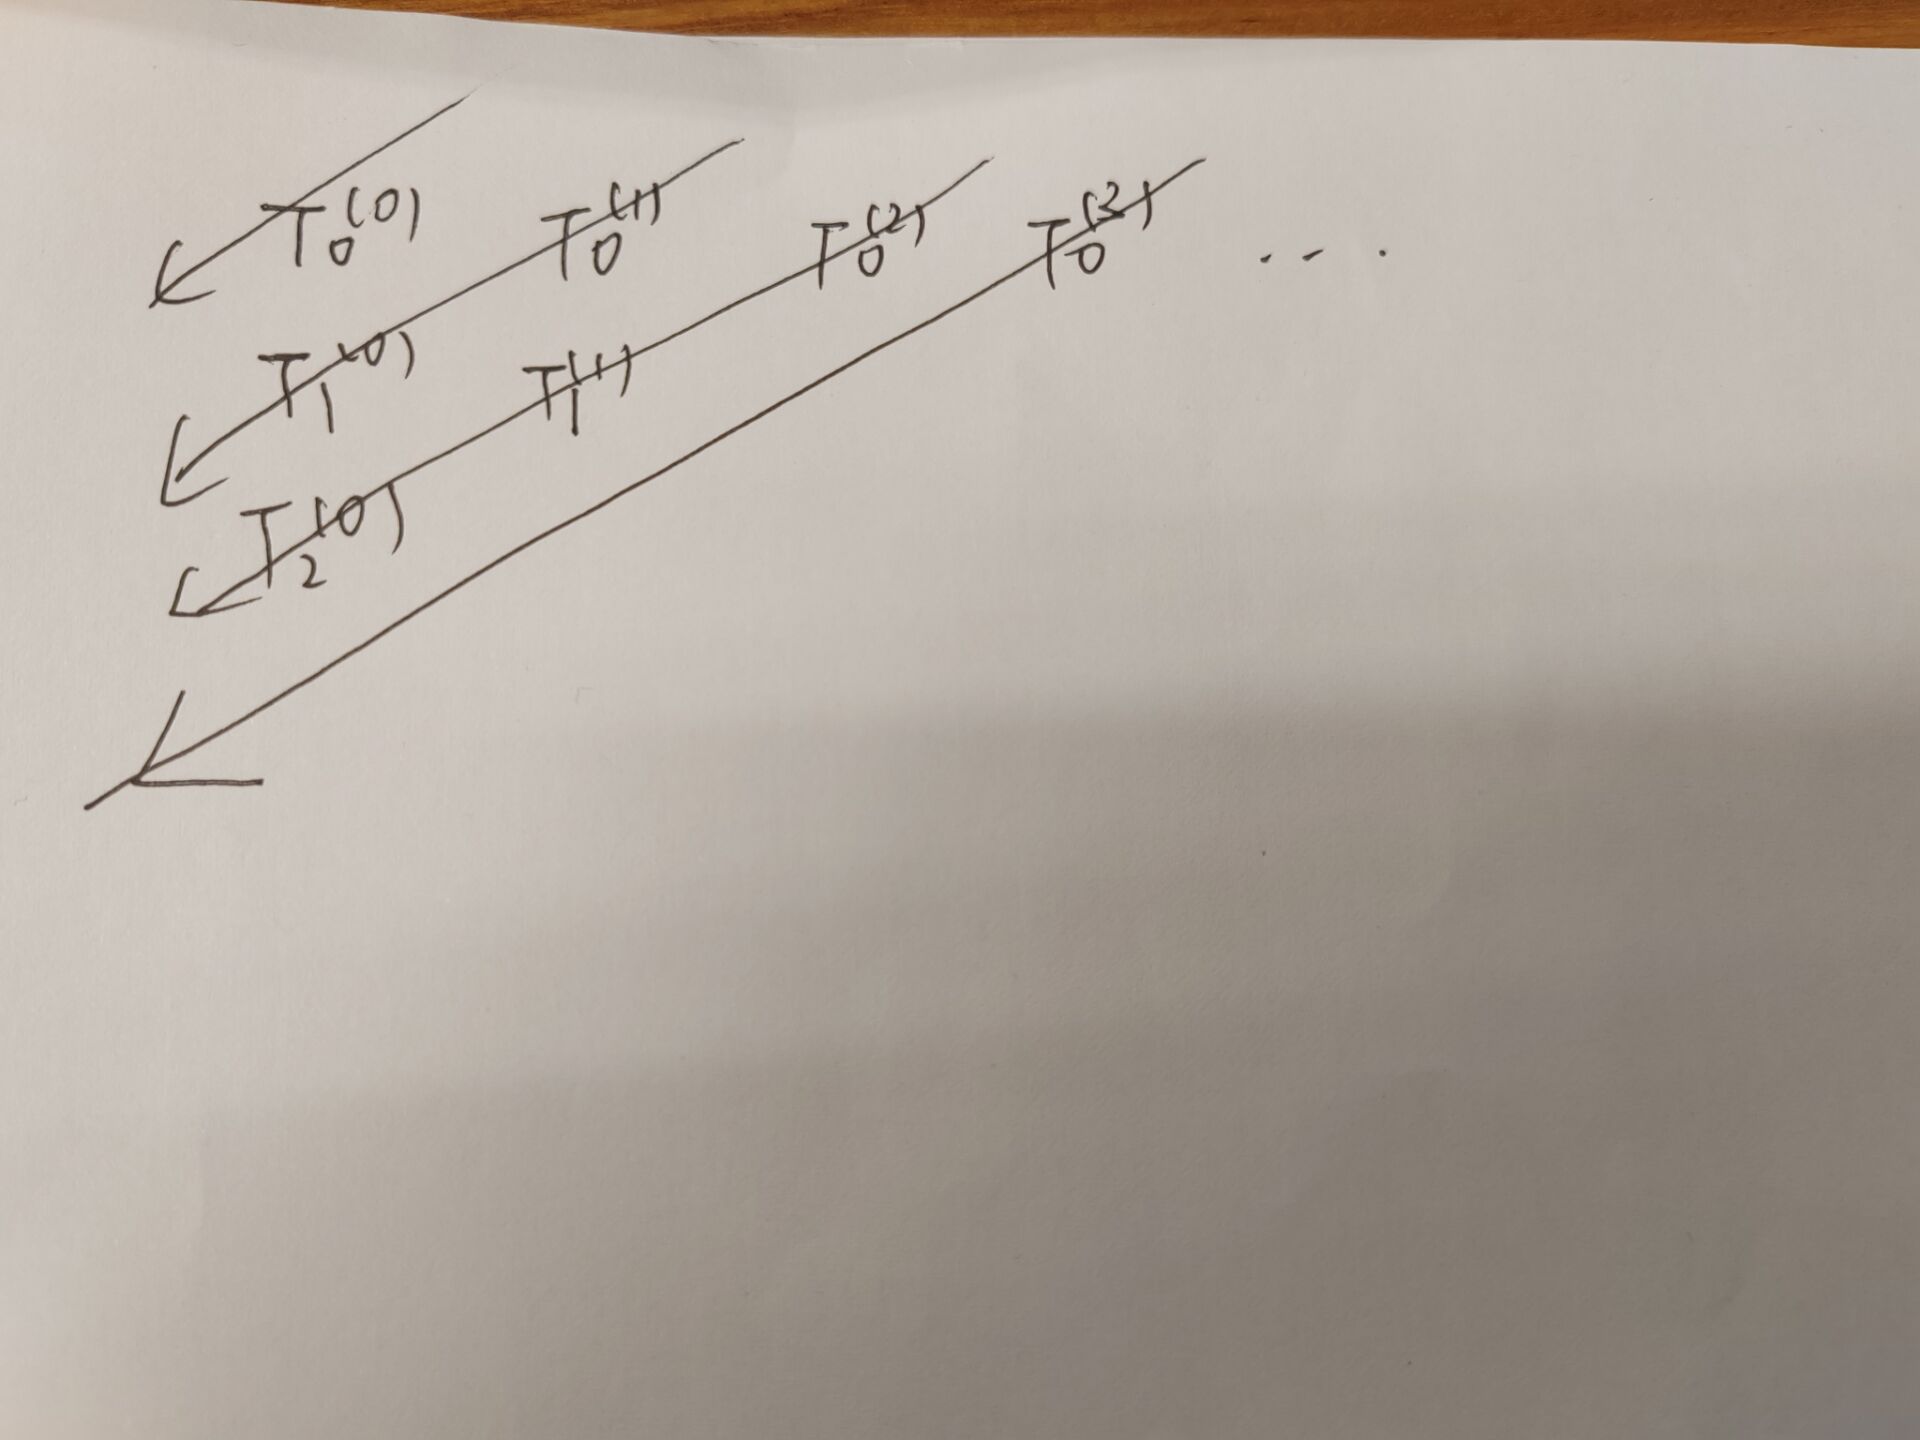 T_0^{(0)} T_0^{(1)} T_0^{(2)} T_0^{(3)} ...
T_1^{(0)} T_1^{(1)}
T_2^{(0)}